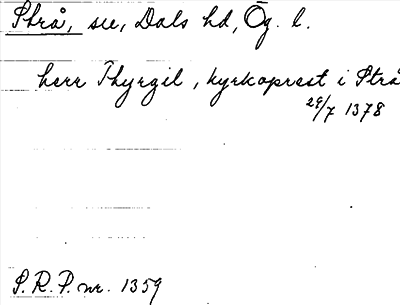 Strå, sn, Dals hd, Ög. l.
herr Thyrgil, kyrkoprest i Strå
29/7 1378
S.R.P. nr. 1359